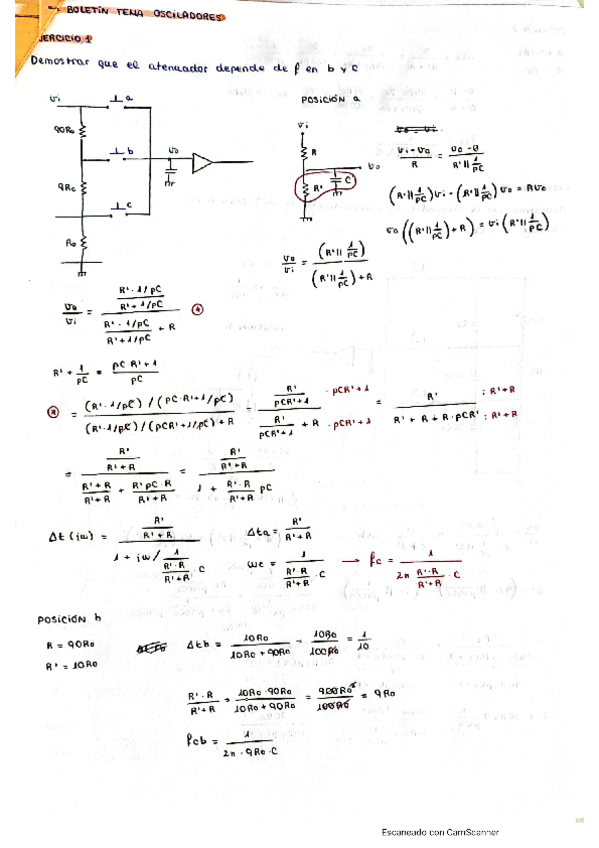 - BOLETÍN TEMA OSCILADORES
JERCICIO 1
Demostrar que el atenuador depende de f en b y c
vi
a
90R₀
b
vo
9R₀
c
R₀
POSICIÓN a
vi
R
vo
R' C
vo = vi
(vi - vo)/R = (vo - 0)/(R' || 1/pC)
(R' || 1/pC) vi - (R' || 1/pC) vo = R vo
vo ((R' || 1/pC) + R) = vi (R' || 1/pC)
vo/vi = (R' || 1/pC)/((R' || 1/pC) + R)
vo/vi = ((R' · 1/pC)/(R' + 1/pC))/((R' · 1/pC)/(R' + 1/pC) + R) *
R' + 1/pC = (pC R' + 1)/pC
* = ((R' · 1/pC)/(pC·R'+1/pC))/((R'·1/pC)/(pCR'+1/pC) + R) = (R'/(pCR'+1) · pCR'+1)/(R'/(pCR'+1) + R · pCR'+1) = (R' : R'+R)/(R' + R + R·pCR' : R'+R)
= (R'/(R'+R))/((R'+R)/(R'+R) + (R' pC · R)/(R'+R)) = (R'/(R'+R))/(1 + (R'·R)/(R'+R) pC)
Δt (jω) = (R'/(R'+R))/(1 + jω / (1/((R'·R)/(R'+R) · C))) Δta = R'/(R'+R)
ωc = 1/((R'·R)/(R'+R) · C) → fc = 1/(2π (R'·R)/(R'+R) · C)
POSICIÓN b
R = 90R₀
R' = 10R₀
Δtb = 10R₀/(10R₀ + 90R₀) = 10R₀/100R₀ = 1/10
(R'·R)/(R'+R) = (10R₀·90R₀)/(10R₀ + 90R₀) = 900R₀²/100R₀ = 9R₀
fcb = 1/(2π · 9R₀ · C)
Escaneado con CamScanner